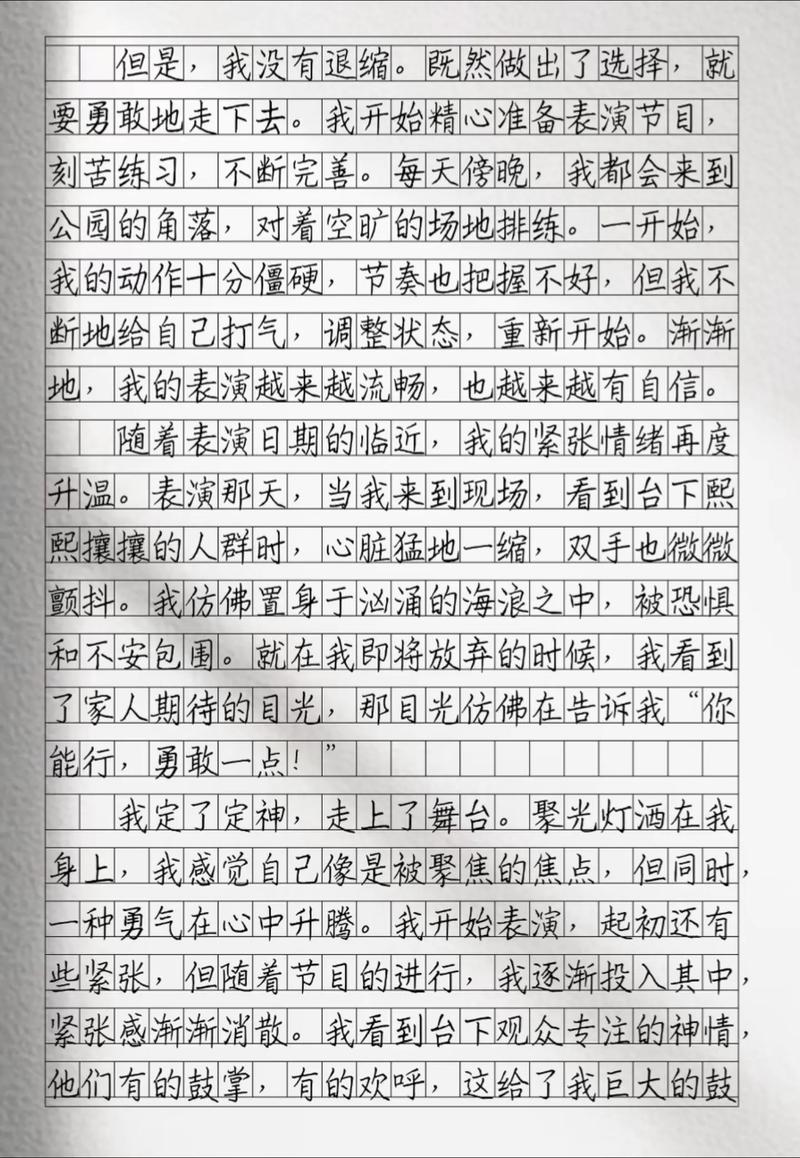 但是，我没有退缩。既然做出了选择，就
要勇敢地走下去。我开始精心准备表演节目，
刻苦练习，不断完善。每天傍晚，我都会来到
公园的角落，对着空旷的场地排练。一开始，
我的动作十分僵硬，节奏也把握不好，但我不
断地给自己打气，调整状态，重新开始。渐渐
地，我的表演越来越流畅，也越来越有自信。
随着表演日期的临近，我的紧张情绪再度
升温。表演那天，当我来到现场，看到台下熙
熙攘攘的人群时，心脏猛地一缩，双手也微微
颤抖。我仿佛置身于汹涌的海浪之中，被恐惧
和不安包围。就在我即将放弃的时候，我看到
了家人期待的目光，那目光仿佛在告诉我“你
能行，勇敢一点！”
我定了定神，走上了舞台。聚光灯洒在我
身上，我感觉自己像是被聚焦的焦点，但同时，
一种勇气在心中升腾。我开始表演，起初还有
些紧张，但随着节目的进行，我逐渐投入其中，
紧张感渐渐消散。我看到台下观众专注的神情，
他们有的鼓掌，有的欢呼，这给了我巨大的鼓